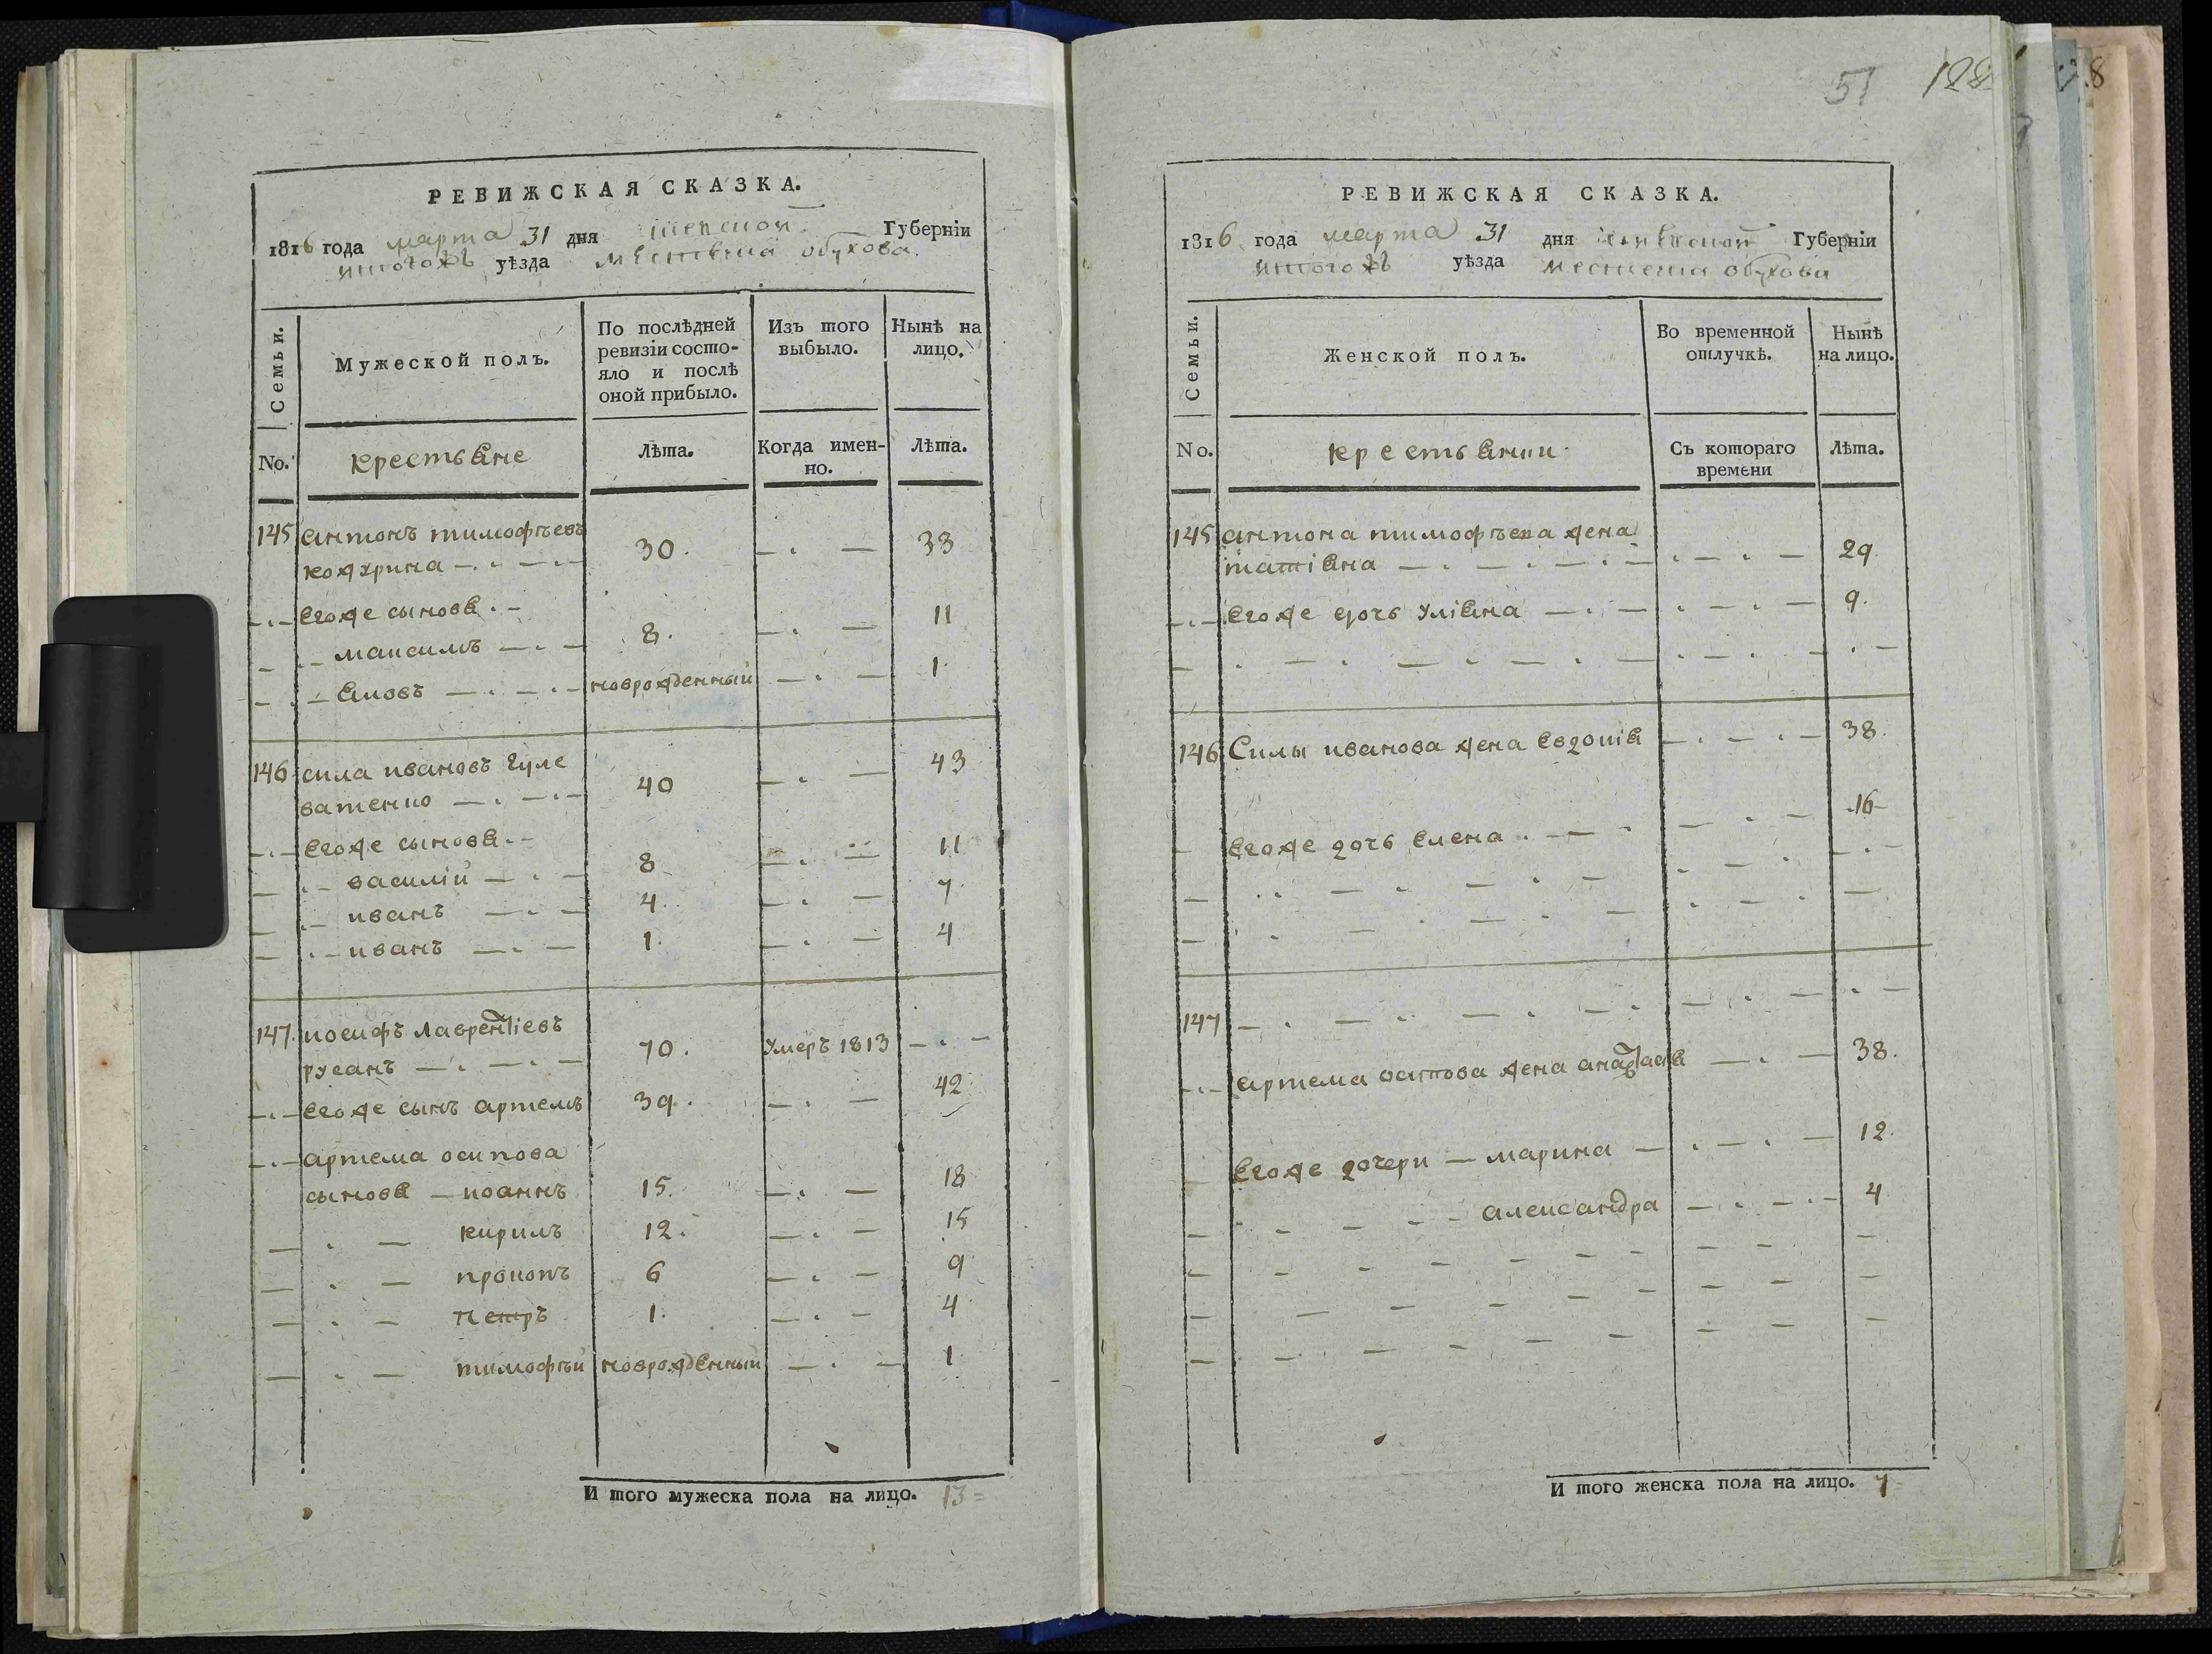 РЕВИЖСКАЯ СКАЗКА.
1816 года марта 31 дня Губерніи
уѣзда местечка обухова.
Семьи.
Мужеской полъ.
По послѣдней ревизіи состояло и послѣ оной прибыло.
Изъ того выбыло.
Нынѣ на лицо.
No. крестьяне Лѣта. Когда именно. Лѣта.
145 антонъ тимофѣевъ
30. 33
его же сыновя
максимъ 8. 11
яковъ новрожденный 1
146 сила ивановъ гуле
ватенко 40 43
его же сыновя
василій 8 11
иванъ 4. 7
иванъ 1. 4
147. иосифъ лаврентіевъ
русанъ 70. Умеръ 1813
его же сынъ артемъ 39. 42
артема осипова
сыновя иоаннъ 15. 18
кирилъ 12. 15
прокопъ 6 9
петръ 1. 4
тимофѣй новрожденный 1
И того мужеска пола на лицо. 13
51 128
РЕВИЖСКАЯ СКАЗКА.
1816 года марта 31 дня Губерніи
уѣзда местечка обухова
Семьи.
Женской полъ.
Во временной отлучкѣ.
Нынѣ на лицо.
No. крестьянки Съ котораго времени Лѣта.
145 антона тимофѣева жена
татіяна 29
его же дочь уліяна 9.
146 Силы иванова жена евдокія 38.
его же дочь елена 16
147
артема осипова жена анастасія 38.
его же дочери марина 12.
александра 4
И того женска пола на лицо. 7